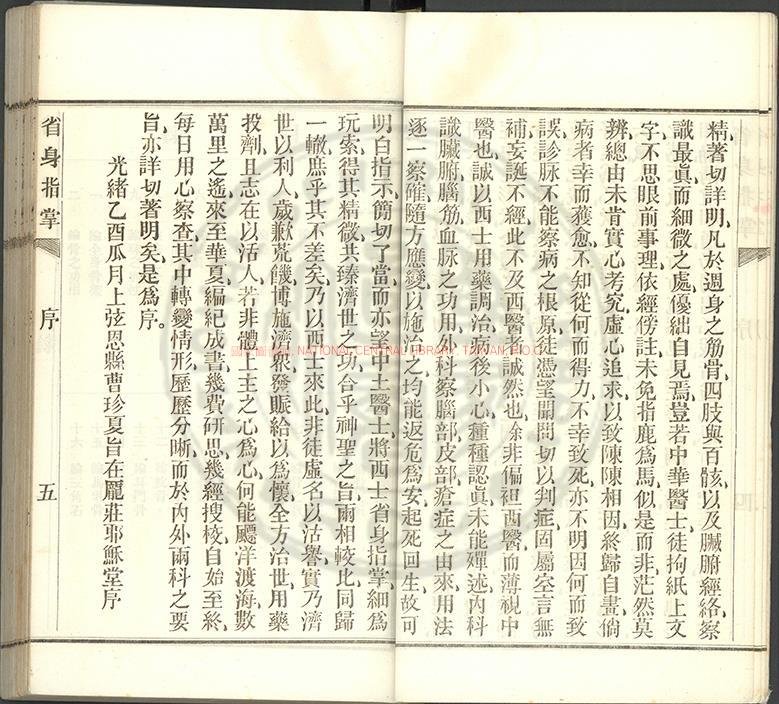 精著切詳明、凡於週身之筋骨四肢與百骸以及臟腑經絡、察
識最眞而細微之處、優絀自見焉、豈若中華醫士徒拘紙上文
字、不思眼前事理、依經傍註、未免指鹿爲馬、似是而非、茫然莫
辨、總由未肯實心考究、虛心追求、以致陳陳相因、終歸自畫、倘
病者幸而獲愈、不知從何而得力、不幸致死、亦不明因何而致
誤、診脉不能察病之根原、徒憑望聞問切以判症、固屬空言無
補、妄誕不經、此不及西醫者誠然也、余非偏袒西醫、而薄視中
醫也、誠以西士用藥調治、病後小心、種種認眞、未能殫述、內科
識臟腑腦筋血脉之功用、外科察腦部皮部瘡症之由來、用法
逐一察確、隨方應變、以施治之、均能返危爲安、起死回生、故可
明白指示、簡切了當、而亦望中土醫士、將西士省身指掌、細爲
玩索、得其精微、共臻濟世之功、合乎神聖之旨、兩相較比、同歸
一轍、庶乎其不差矣、乃以西士來此、非徒虛名以沽譽、實乃濟
世以利人、歲歉荒饑、博施濟眾、發賑給以爲懷、全方治世、用藥
投劑、且志在以活人、若非體上主之心爲心、何能飄洋渡海、數
萬里之遙、來至華夏、編紀成書、幾費研思、幾經搜校、自始至終、
每日用心察查、其中轉變情形、歷歷分晰、而於內外兩科之要
旨、亦詳切著明矣、是爲序。
光緒乙酉瓜月上弦恩縣曹珍夏旨在龐莊耶穌堂序
省身指掌
序
五
國家圖書館 NATIONAL CENTRAL LIBRARY, TAIWAN, R.O.C